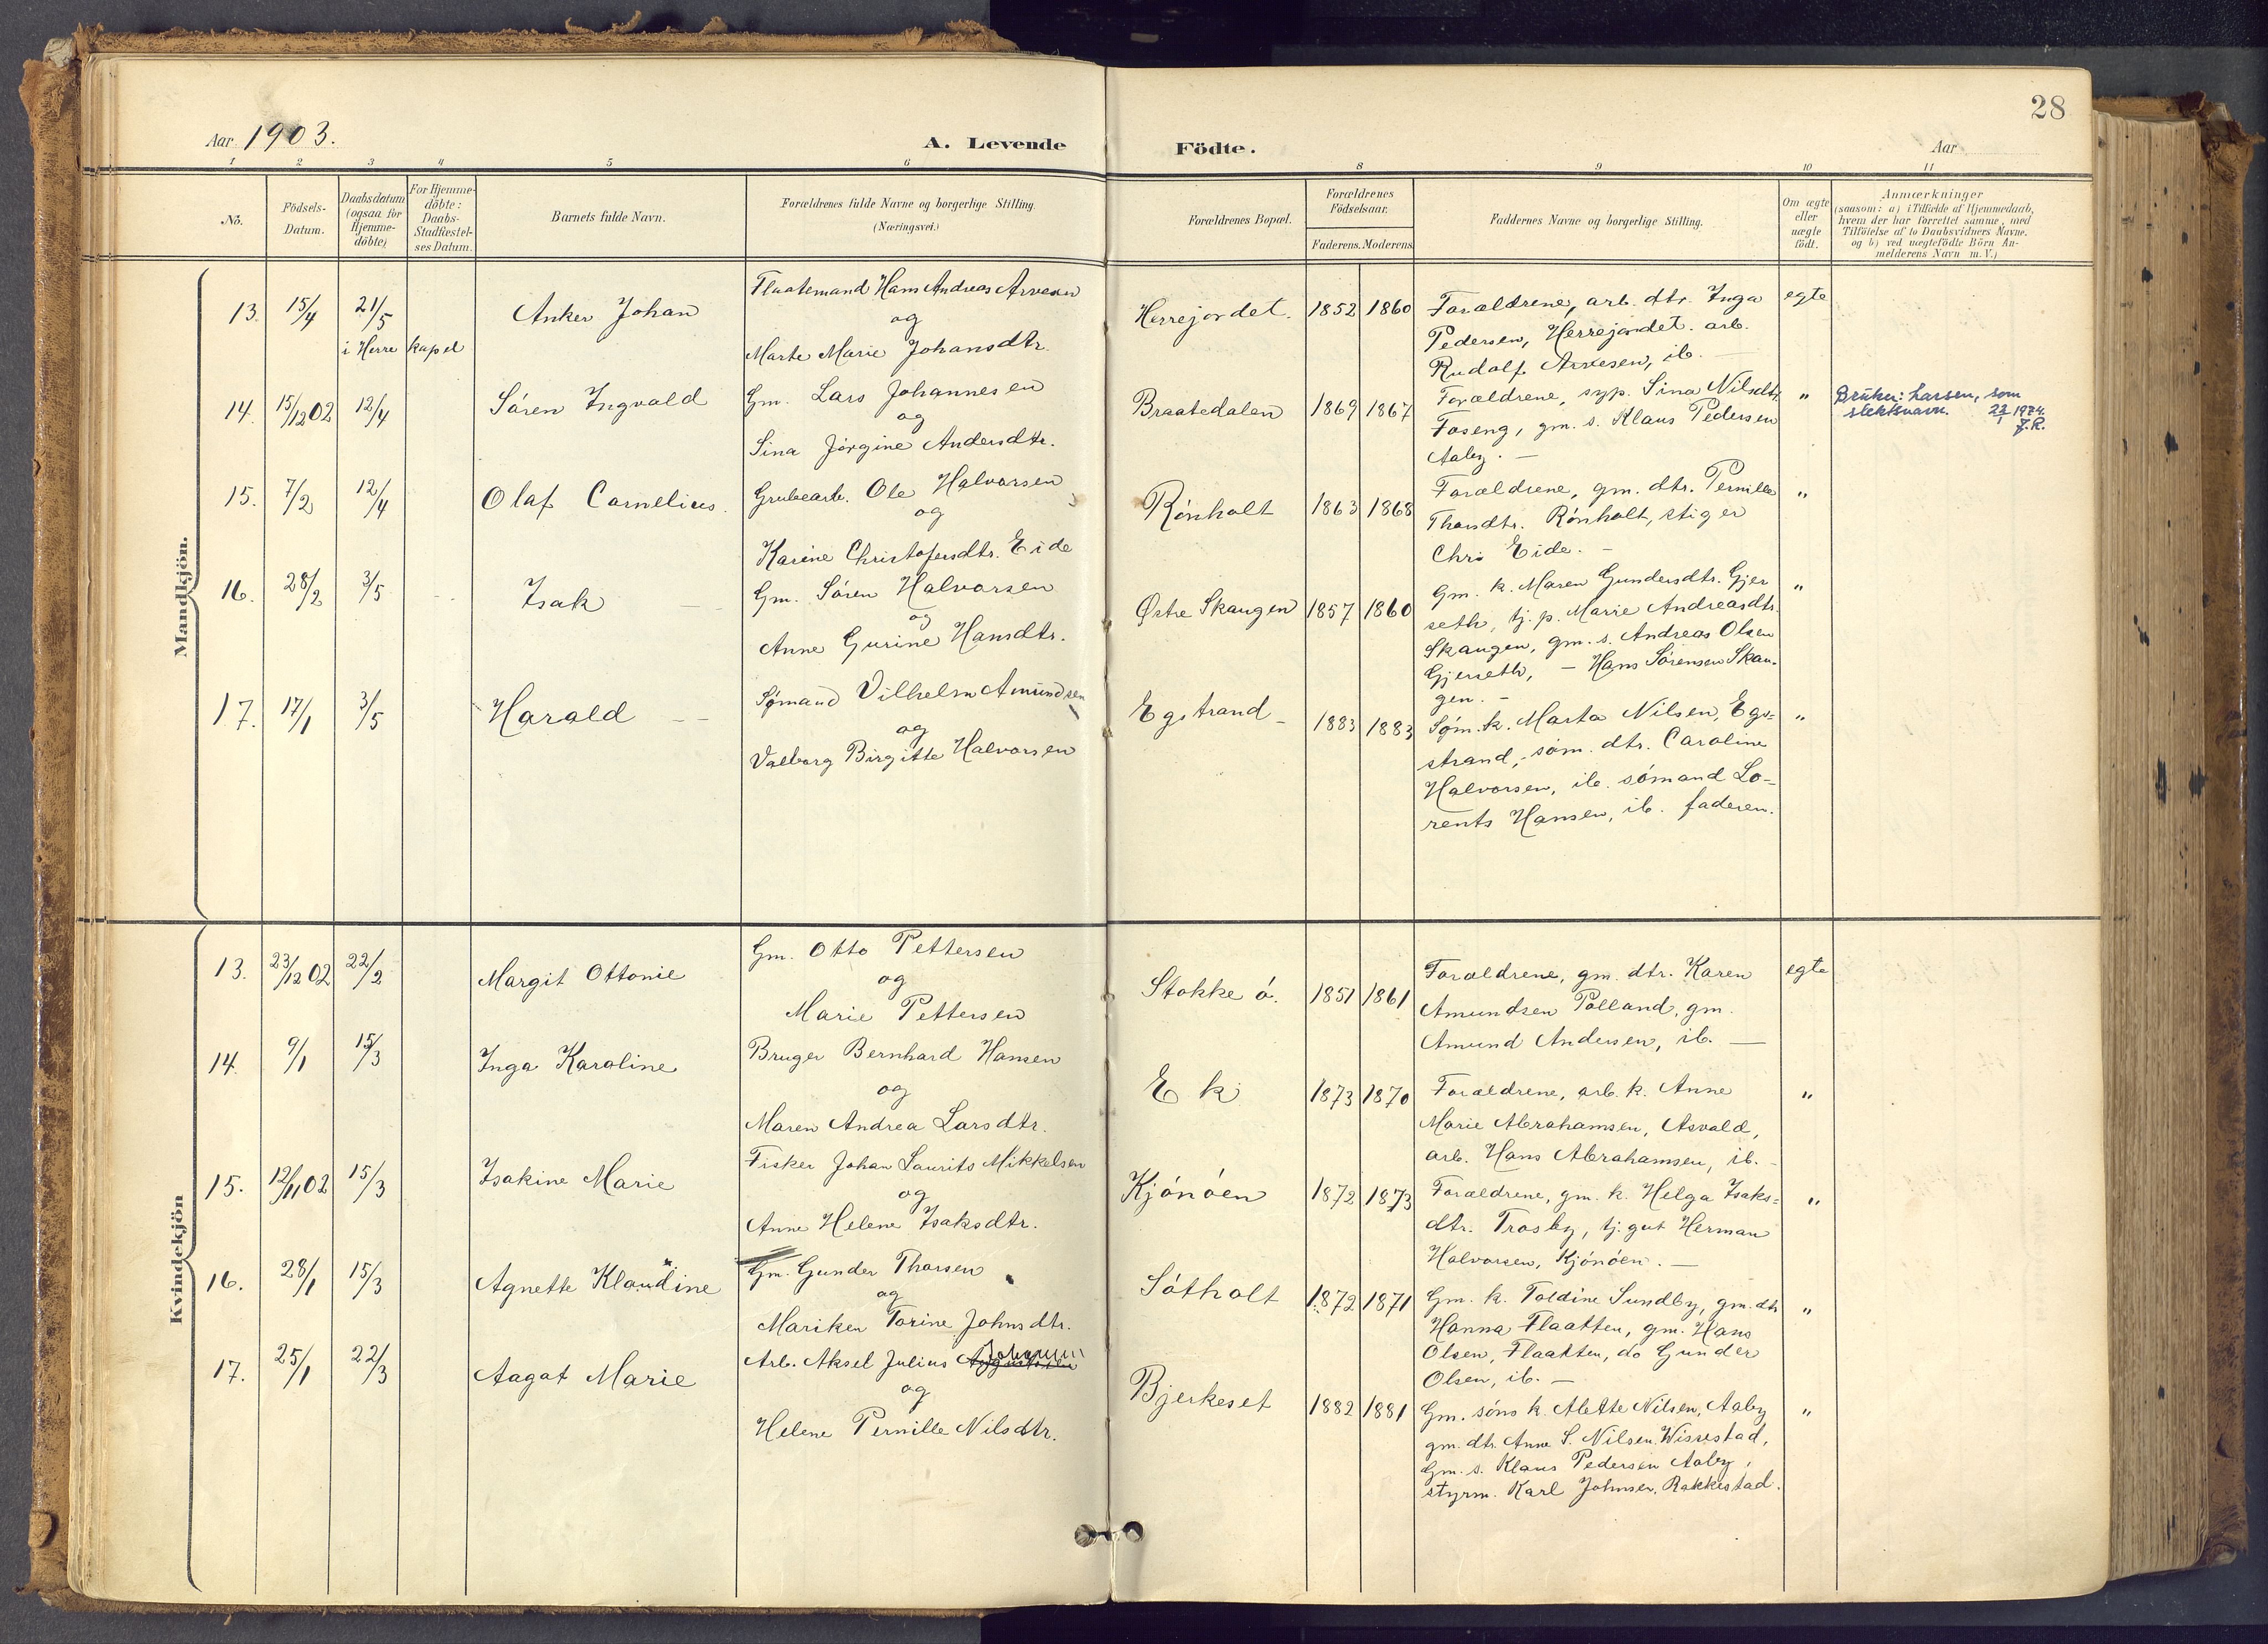 28
Aar 1903.
A. Levende Födte.
Aar
1 2 3 4 5 6 8 9 10 11
No.
Födsels-
Datum.
Daabsdatum
(ogsaa for
Hjemme-
döbte)
For Hjemme-
döbte:
Daabs-
Stadfæstel-
ses Datum.
Barnets fulde Navn.
Forældrenes fulde Navne og borgerlige Stilling.
(Næringsvei.)
Forældrenes Bopæl.
Forældrenes
Födselsaar.
Faderens. Moderens
Faddernes Navne og borgerlige Stilling.
Om ægte
eller
uægte
födt.
Anmærkninger
(saasom: a) i Tilfælde af Hjemmedaab,
hvem der har forrettet samme, med
Tilföielse af to Daabsvidners Navne.
og b) ved uægtefödte Börn An-
melderens Navn m. V.)
Mandkjön.
13. 15/4 21/5
i Herre kapel
Anker Johan
Flaatemand Hans Andreas Arvesen
og
Marte Marie Johansdtr.
Herrejordet. 1852 1860
Forældrene, arb. dtr. Inga
Pedersen, Herrejordet. arb.
Rudolf Arvesen, ib. —
egte
14. 15/12 02 12/4
Sören Ingvald
Gm. Lars Johannesen
og
Sina Jörgine Andersdtr.
Braatedalen 1869 1867
Forældrene, syp. Sina Nilsdtr.
Foseng, gm. s. Klaus Pedersen
Aaby. —
"
Bruker: Larsen, som
slektsnavn. 23/1 1924.
J.R.
15. 7/2 12/4
Olaf Cornelius.
Grubearb. Ole Halvorsen
og
Karine Christofersdtr. Eide
Rönholt 1863 1868
Forældrene, gm. dtr. Pernille
Thorsdtr. Rönholt, stiger
Chrs Eide. —
"
16. 28/2 3/5
Isak —
Gm. Sören Halvorsen
og
Anne Gurine Hansdtr.
Østre Skaugen 1857 1860
Gm. k. Maren Gundersdtr. Gjer
seth, tj. p. Marie Andreasdtr.
Skaugen, gm. s. Andreas Olsen
Gjerseth, — Hans Sörensen Skau-
gen. —
"
17. 17/1 3/5
Harald — —
Sømand Vilhelm Amundsen
og
Valborg Birgitte Halvorsen
Egstrand — 1883 1883
Søm. k. Marta Nilsen, Egs=
strand, söm. dtr. Caroline
Halvorsen, ib. sömand Lo-
rents Hansen, ib. faderen.
"
Kvindekjön
13. 23/12 02 22/2
Margit Ottonie
Gm. Otto Pettersen
og
Marie Pettersen
Stokke ö. 1851 1861
Forældrene, gm. dtr. Karen
Amundsen Polland, gm.
Amund Andersen, ib. —
egte
14. 9/1 15/3
Inga Karoline
Bruger Bernhard Hansen
og
Maren Andrea Larsdtr.
Ek 1873 1870
Forældrene, arb. k. Anne
Marie Abrahamsen, Asvald,
arb. Hans Abrahamsen, ib. —
"
15. 12/11 02 15/3
Isakine Marie
Fisker Johan Laurits Mikkelsen
og
Anne Helene Isaksdtr.
Kjönöen 1872 1873
Forældrene, gm. k. Helga Isaks=
dtr. Trosby, tj. gut Herman
Halvorsen, Kjönöen. —
"
16. 28/1 15/3
Agnette Klaudine
Gm. Gunder Thorsen
og
Mariken Torine Johnsdtr.
Sötholt 1872 1871
Gm. k. Toldine Sundby, gm. dtr
Hanna Flaatten, gm. Hans
Olsen, Flaatten, do Gunder
Olsen, ib. —
"
17. 25/1 22/3
Aagot Marie
Arb. Aksel Julius
og
Helene Pernille Nilsdtr.
Bjerkeset 1882 1881
Gm. söns k. Alette Nilsen, Aaby
gm. dtr. Anne S. Nilsen Wissestad,
Gm. s. Klaus Pedersen Aaby,
styrm. Karl Johnsen, Rakkestad.
"